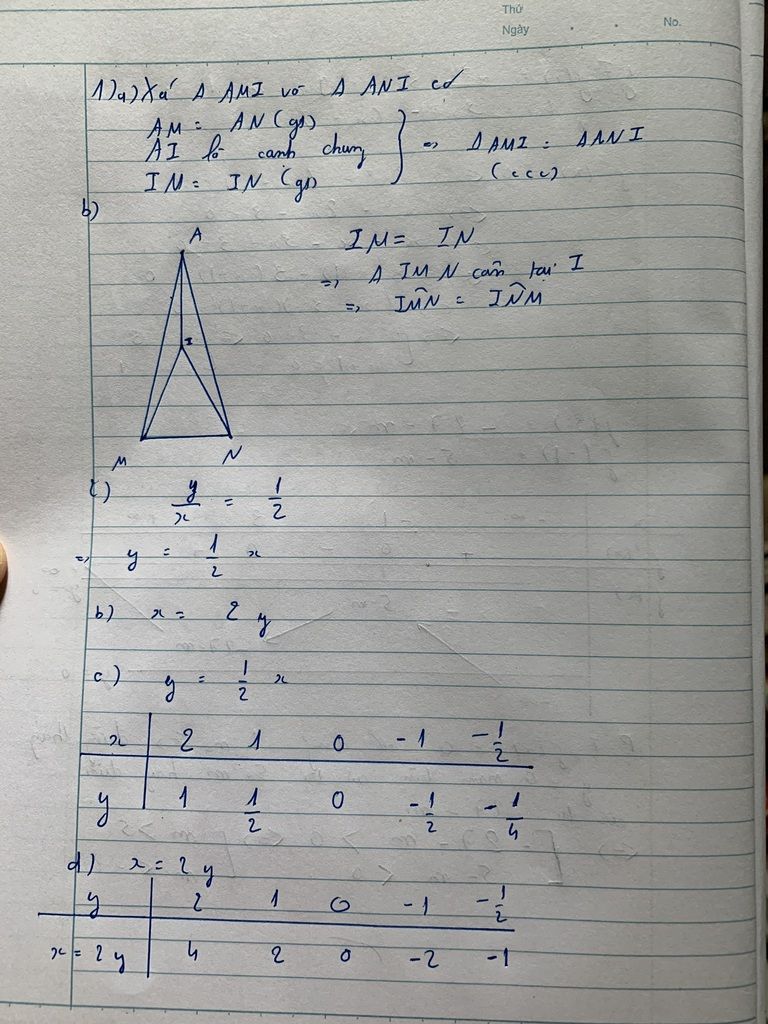 Thứ
Ngày . . No.
1) a) Xá Δ AMI và Δ ANI có
AM = AN (gt)
AI là cạnh chung } => Δ AMI = Δ ANI
IM = IN (gt) (ccc)
b)
A
I
M N
IM = IN
=> Δ IMN cân tại I
=> IM̂N = IN̂M
c) y/x = 1/2
=> y = 1/2 x
b) x = 2y
c) y = 1/2 x
x 2 1 0 -1 -1/2
y 1 1/2 0 -1/2 -1/4
d) x = 2y
y 2 1 0 -1 -1/2
x = 2y 4 2 0 -2 -1